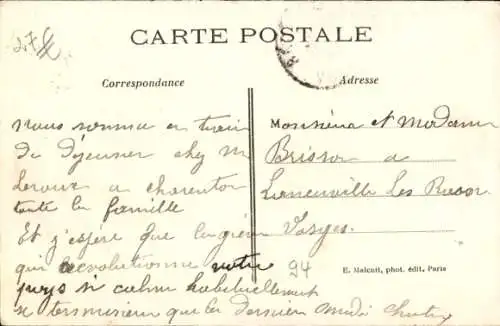 27
CARTE POSTALE
Correspondance
Adresse
nous somme en train
de déjeuner chez M
Leroux a charenton
toute la famille
Et j'espére que la grève
qui révolutionne notre
pays si calme habituellement
se terminera que
Monsieur et Madame
Brisson a
Laneuville Les Raon
Vosges
94
E. Malcuit, phot. édit., Paris